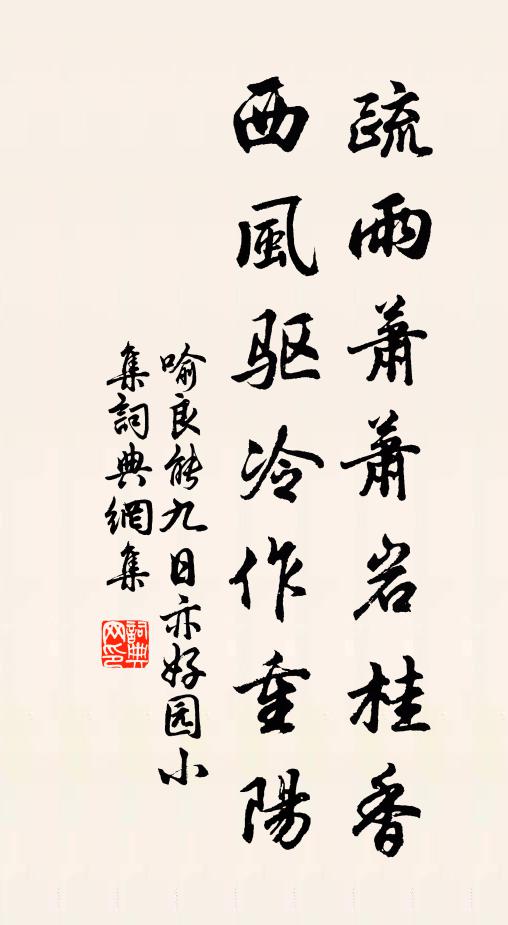 疏雨萧萧岩桂香
西風驱冷作重陽
喻良能九日亦好园小
集詞典網集
詞典
网印